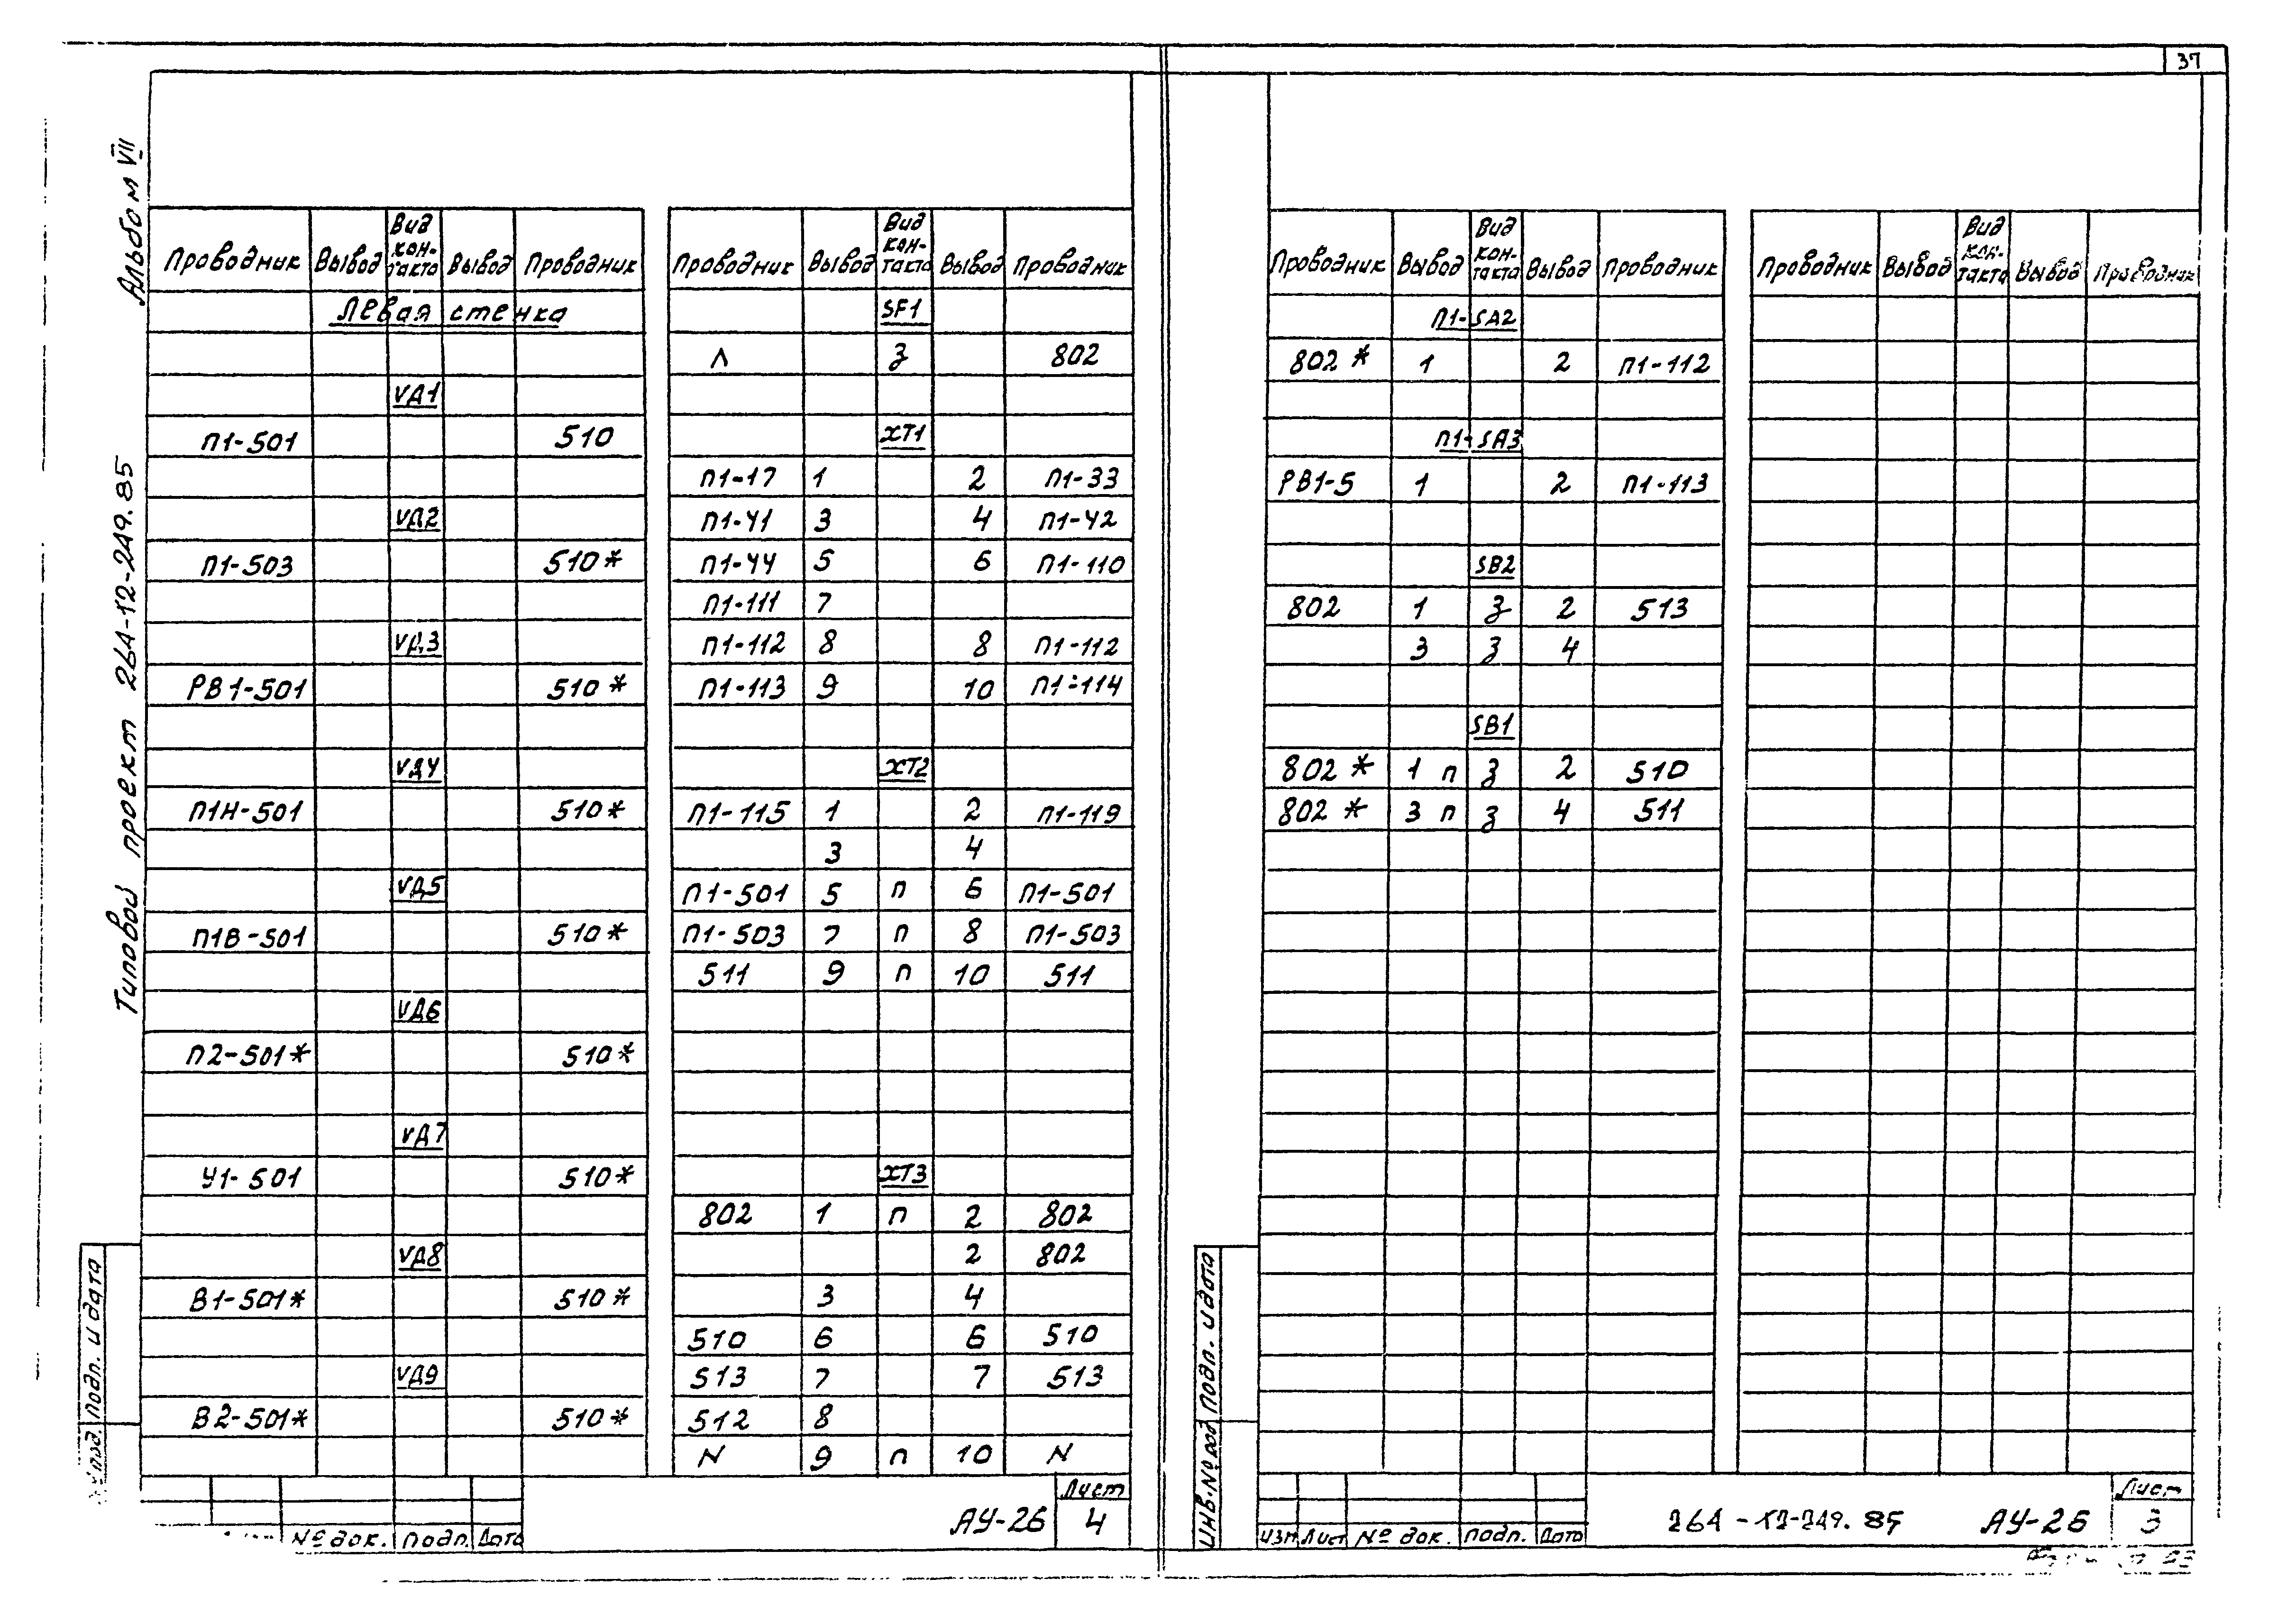 37
Альбом VII
Типовой проект 264-12-249.85
Проводник Вывод Вид контакта Вывод Проводник
Левая стенка
VД1
П1-501 510
VД2
П1-503 510*
VД3
РВ1-501 510*
VД4
П1Н-501 510*
VД5
П1В-501 510*
VД6
П2-501* 510*
VД7
У1-501 510*
VД8
В1-501* 510*
VД9
В2-501* 510*
Проводник Вывод Вид контакта Вывод Проводник
SF1
Л з 802
XT1
П1-17 1 2 П1-33
П1-41 3 4 П1-42
П1-44 5 6 П1-110
П1-111 7
П1-112 8 8 П1-112
П1-113 9 10 П1-114
XT2
П1-115 1 2 П1-119
3 4
П1-501 5 п 6 П1-501
П1-503 7 п 8 П1-503
511 9 п 10 511
XT3
802 1 п 2 802
2 802
3 4
510 6 6 510
513 7 7 513
512 8
N 9 п 10 N
подп. и дата
№ док. подп. Дата
АУ-26
Лист
4
Проводник Вывод Вид контакта Вывод Проводник
П1-SA2
802* 1 2 П1-112
П1-SA3
РВ1-5 1 2 П1-113
SB2
802 1 з 2 513
3 з 4
SB1
802* 1 п з 2 510
802* 3 п з 4 511
Проводник Вывод Вид контакта Вывод Проводник
Инв. № подп. и дата
Изм Лист № док. подп. Дата
264-12-249.85 АУ-26
Лист
3